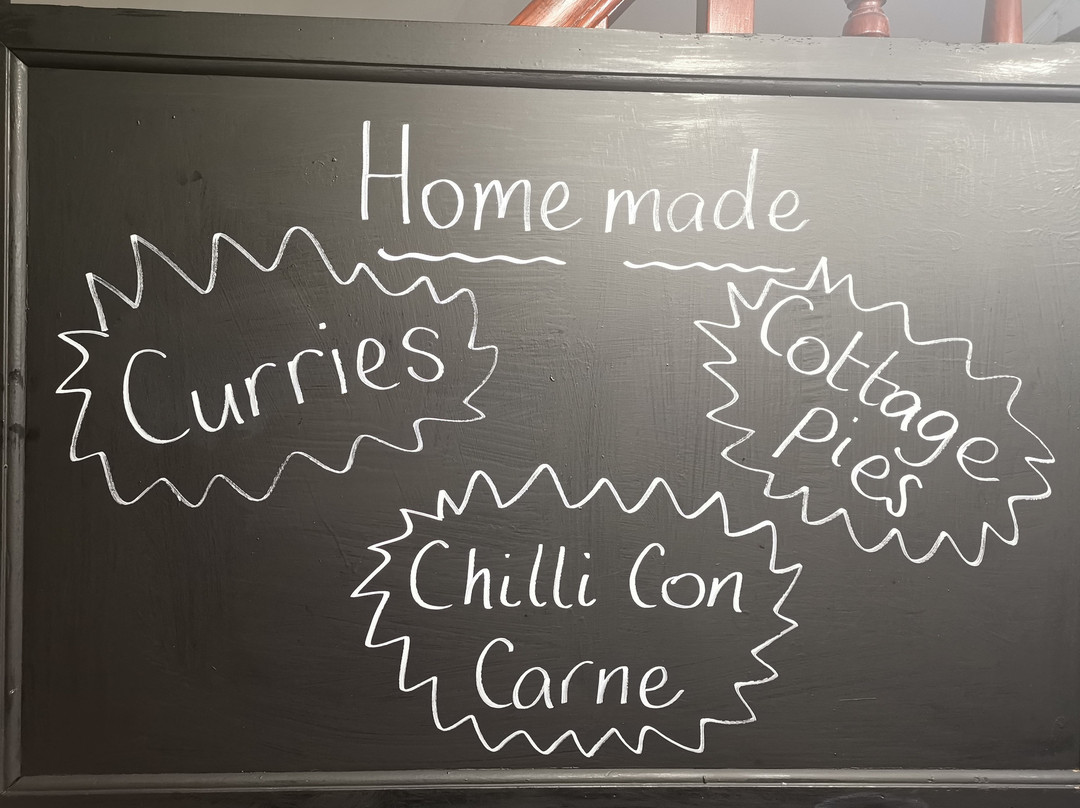 Home made
Curries
Cottage
Pies
Chilli Con
Carne